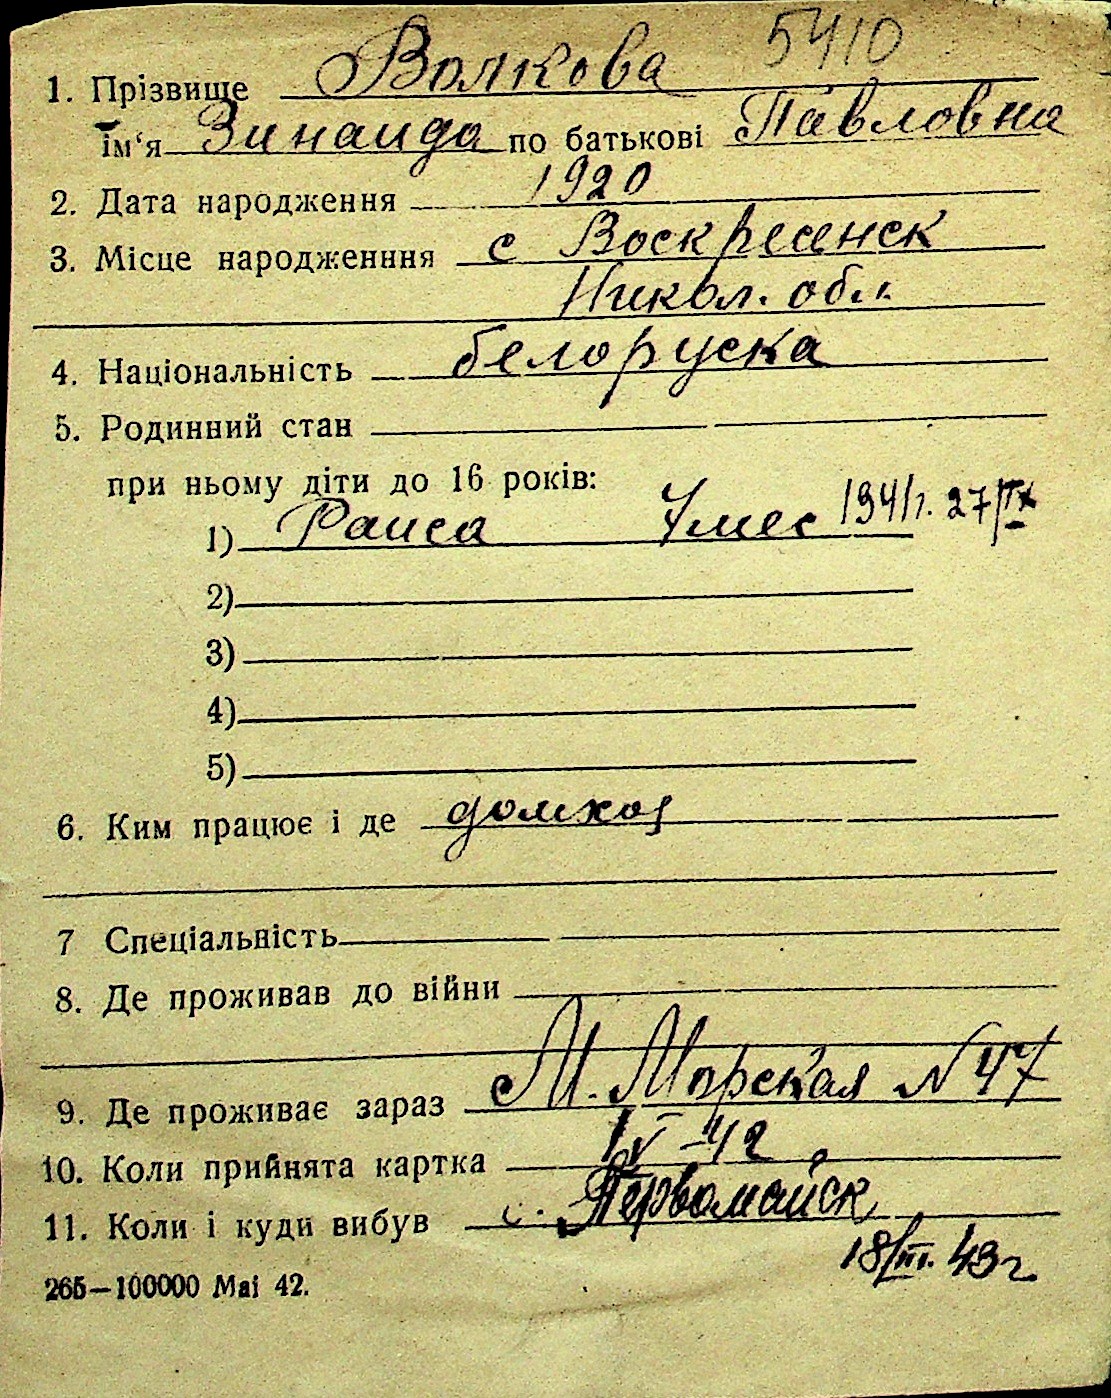 5410
1. Прізвище Волкова
Ім‘я Зинаида по батькові Павловна
2. Дата народження 1920
3. Місце народженння с Воскресенск
Никол. обл.
4. Національність белоруска
5. Родинний стан
при ньому діти до 16 років:
1) Раиса 7 мес 1941г. 27/IX
2)
3)
4)
5)
6. Ким працює і де домхоз
7 Спеціальність
8. Де проживав до війни
9. Де проживає зараз М. Морская №47
10. Коли прийнята картка IV-42
11. Коли і куди вибув с. Первомайск
18/III. 43г
265—100000 Маі 42.